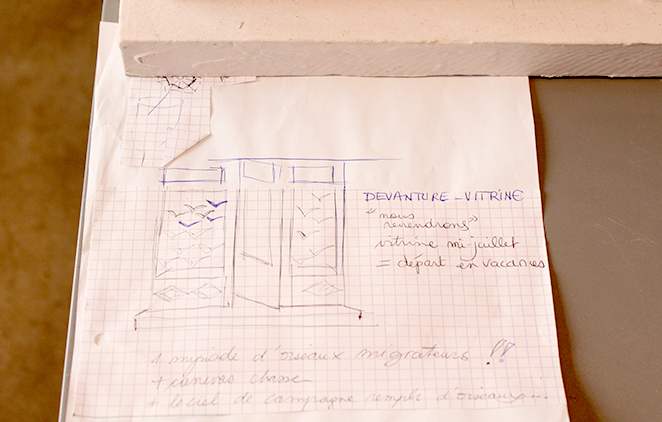 DEVANTURE - VITRINE
"nous
reviendrons"
vitrine mi-juillet
= départ en vacances
1 myriade d'oiseaux migrateurs !!
+ canevas chasse
+ le ciel de campagne rempli d'oiseaux...